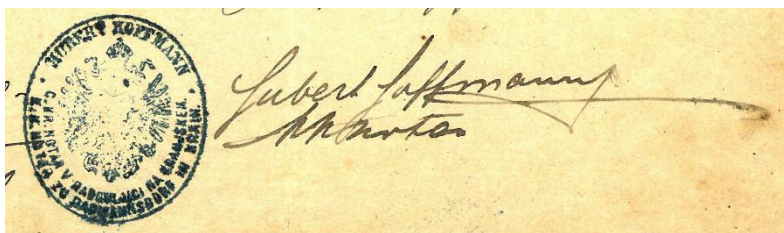 HUBERT HOFFMANN
C. KR. NOTAR V RADOVLJICI NA KRANJSKEM.
K.K. NOTAR ZU RADMANNSDORF IN KRAIN.
Hubert Hoffmann
kk Notar